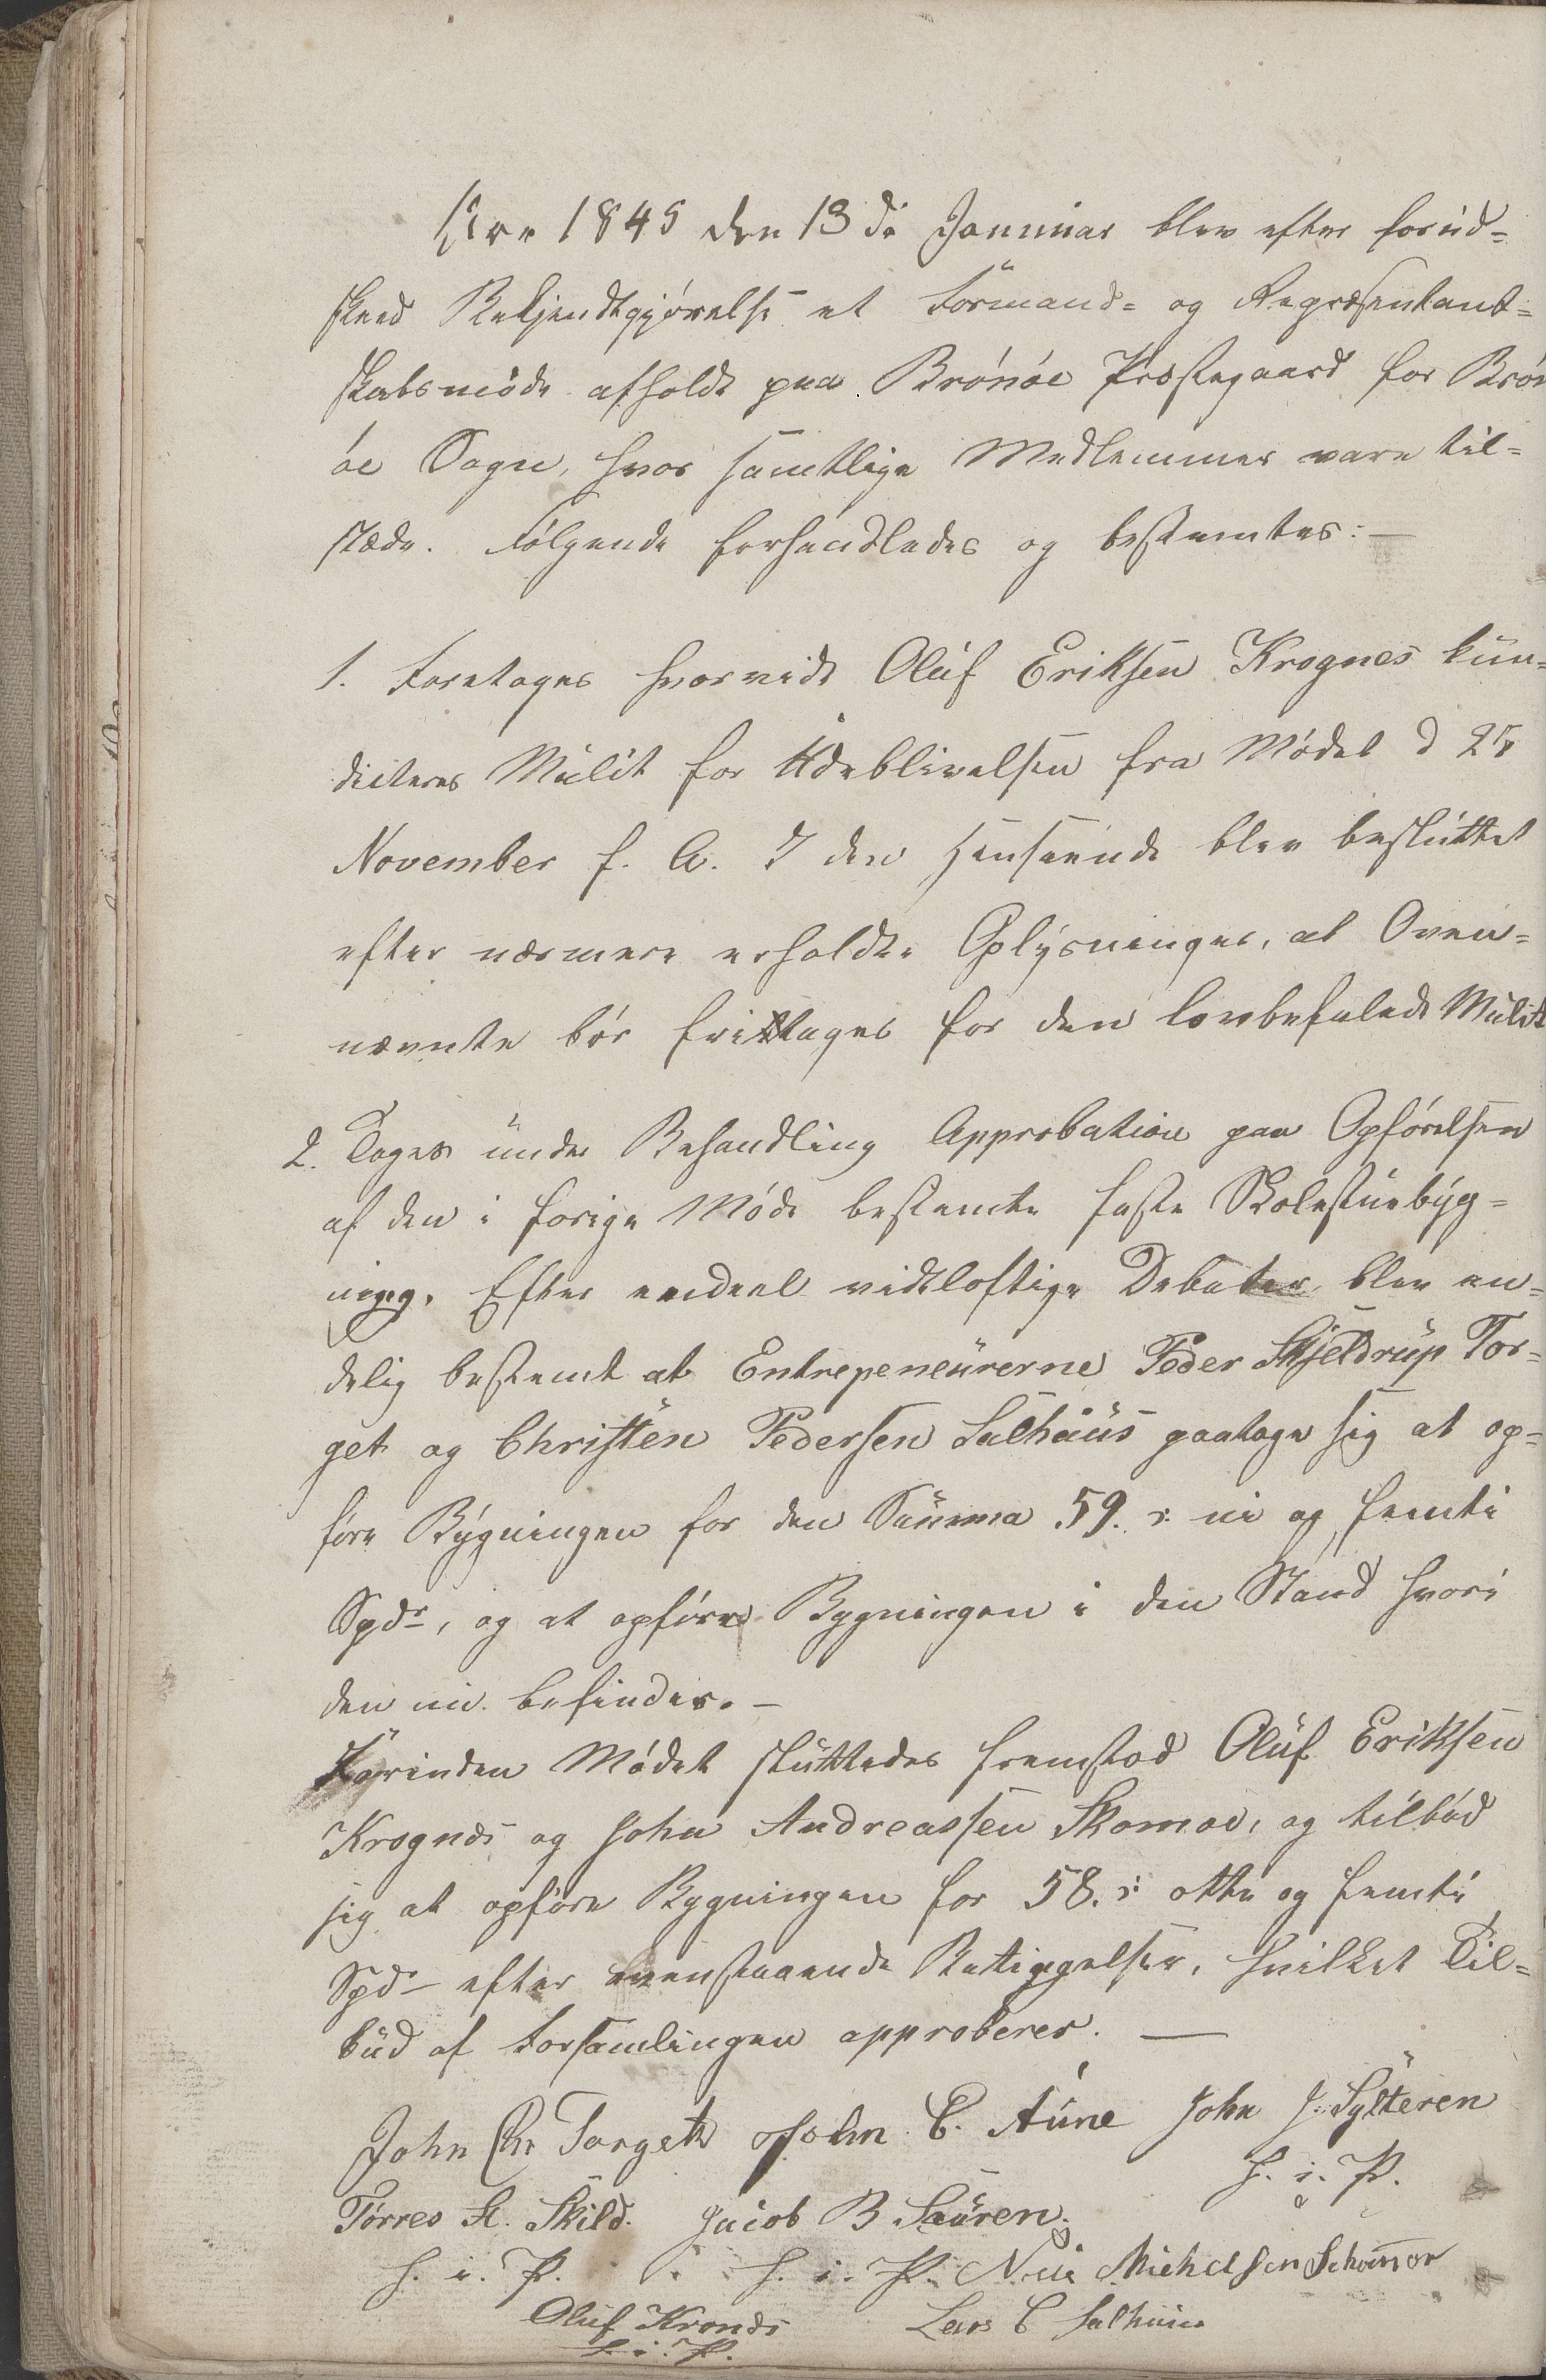 Aar 1845 den 13de Januar blev efter forud-
skeed Bekjendtgjørelse et Formand- og Repræsentant-
skabsmøde afholdt paa Brønøe Præstegaard for Brøn
øe Sogn, hvor samtlige Medlemmer vare til-
stæde. Følgende forhandledes og bestemtes:-
1. Foretoges hvorvidt Oluf Eriksen Krognes kun-
dicteres Mulct for Udeblivelsen fra Mødet d
November f. A. I den Henseende blev besluttet
efter nærmere erholdte Oplysninger, at Oven-
nævnte bør frittages for den lovbefalede Mulct
2. Toges under Behandling Approbation paa Opførelsen
af den i forige Møde bestemte faste Skolestuebyg-
ning. Efter endeel vidtløftige Debater blev en-
delig bestemt at Entrepeneurerne Peder Skjeldrup Tor-
get og Christen Pedersen Salhuus paatoge sig at op-
føre Bygningen for den Summa 59. s: ni og femti
Spdr, og at opføre Bygningen i den Stand hvori
den nu befindes. -
Førinden Mødet sluttedes fremstod Oluf Eriksen
Krognes og John Andreassen Skomoe, og tilbød
sig at opføre Bygningen for 58. s: otte og femti
Spd efter ovenstaaende Betingelser, hvilket Til-
bud af Forsamlingen approberes. -
John Chr Torget John C. Aune John J. Sylteren
h. i. P.
Tørres H. Skild. Jacob B Sauren.
h. i. P. h. i. P. Michelsen
Oluf Krognes Lars C Salhuus
h. i. P.